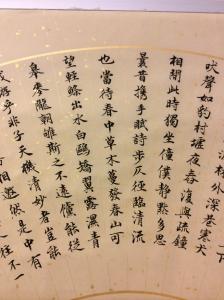 下
林外深巷寒犬
吠聲如豹村墟夜舂復與疏鐘
相間此時獨坐僮僕靜默多思
曩昔携手賦詩步仄徑臨清流
也當待春中草木蔓發春山可
望輕鯈出水白鷗矯翼露濕青
皋麥隴朝雊斯之不遠儻能從
我遊乎非子天機清妙者豈能
相邀然是中有
人往不一